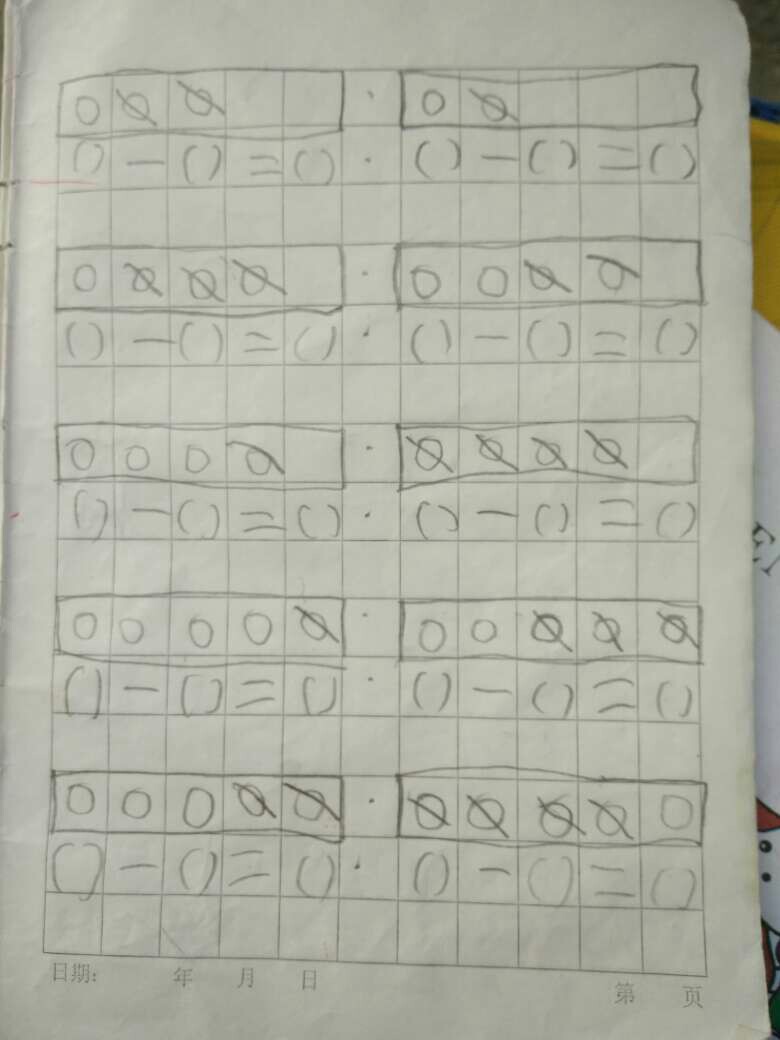 ○ ∅ ∅ · ○ ∅
( ) — ( ) = ( ) · ( ) — ( ) = ( )
○ ∅ ∅ ∅ · ○ ○ ∅ ∅
( ) — ( ) = ( ) · ( ) — ( ) = ( )
○ ○ ○ ∅ · ∅ ∅ ∅ ∅
( ) — ( ) = ( ) · ( ) — ( ) = ( )
○ ○ ○ ○ ∅ · ○ ○ ∅ ∅ ∅
( ) — ( ) = ( ) · ( ) — ( ) = ( )
○ ○ ○ ∅ ∅ · ∅ ∅ ∅ ∅ ○
( ) — ( ) = ( ) · ( ) — ( ) = ( )
日期: 年 月 日 第 页